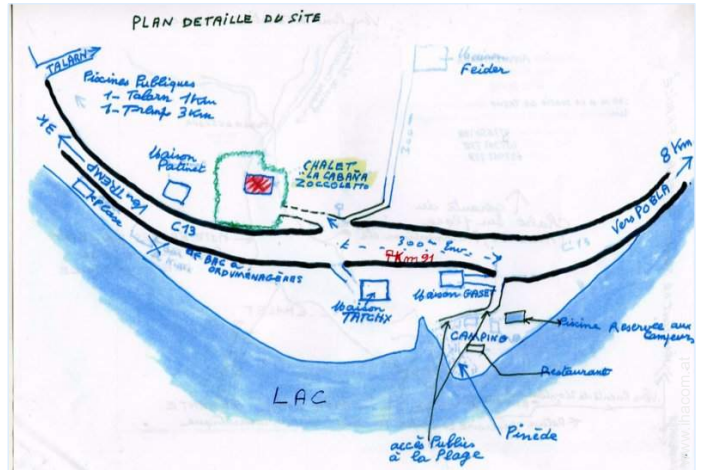 PLAN DETAILLE DU SITE
TALARN
Piscines Publiques
1- Talarn 1Km
1- Tremp 3Km
Maison
Feider
300m
3K
Vers TREMP
Maison
Patinet
CHALET
"LA CABAÑA
ZOCCOLETTO
8 Km
Vers POBLA
C13
300m Env.
PKm 91
BAC a
ORDUMÉNAGÈRES
Maison
TATCHX
Maison GASET
CAMPING
Piscine Reservée aux
Campeurs
Restaurant
LAC
Pinède
accès Publics
à la Plage
www.ihacom.al